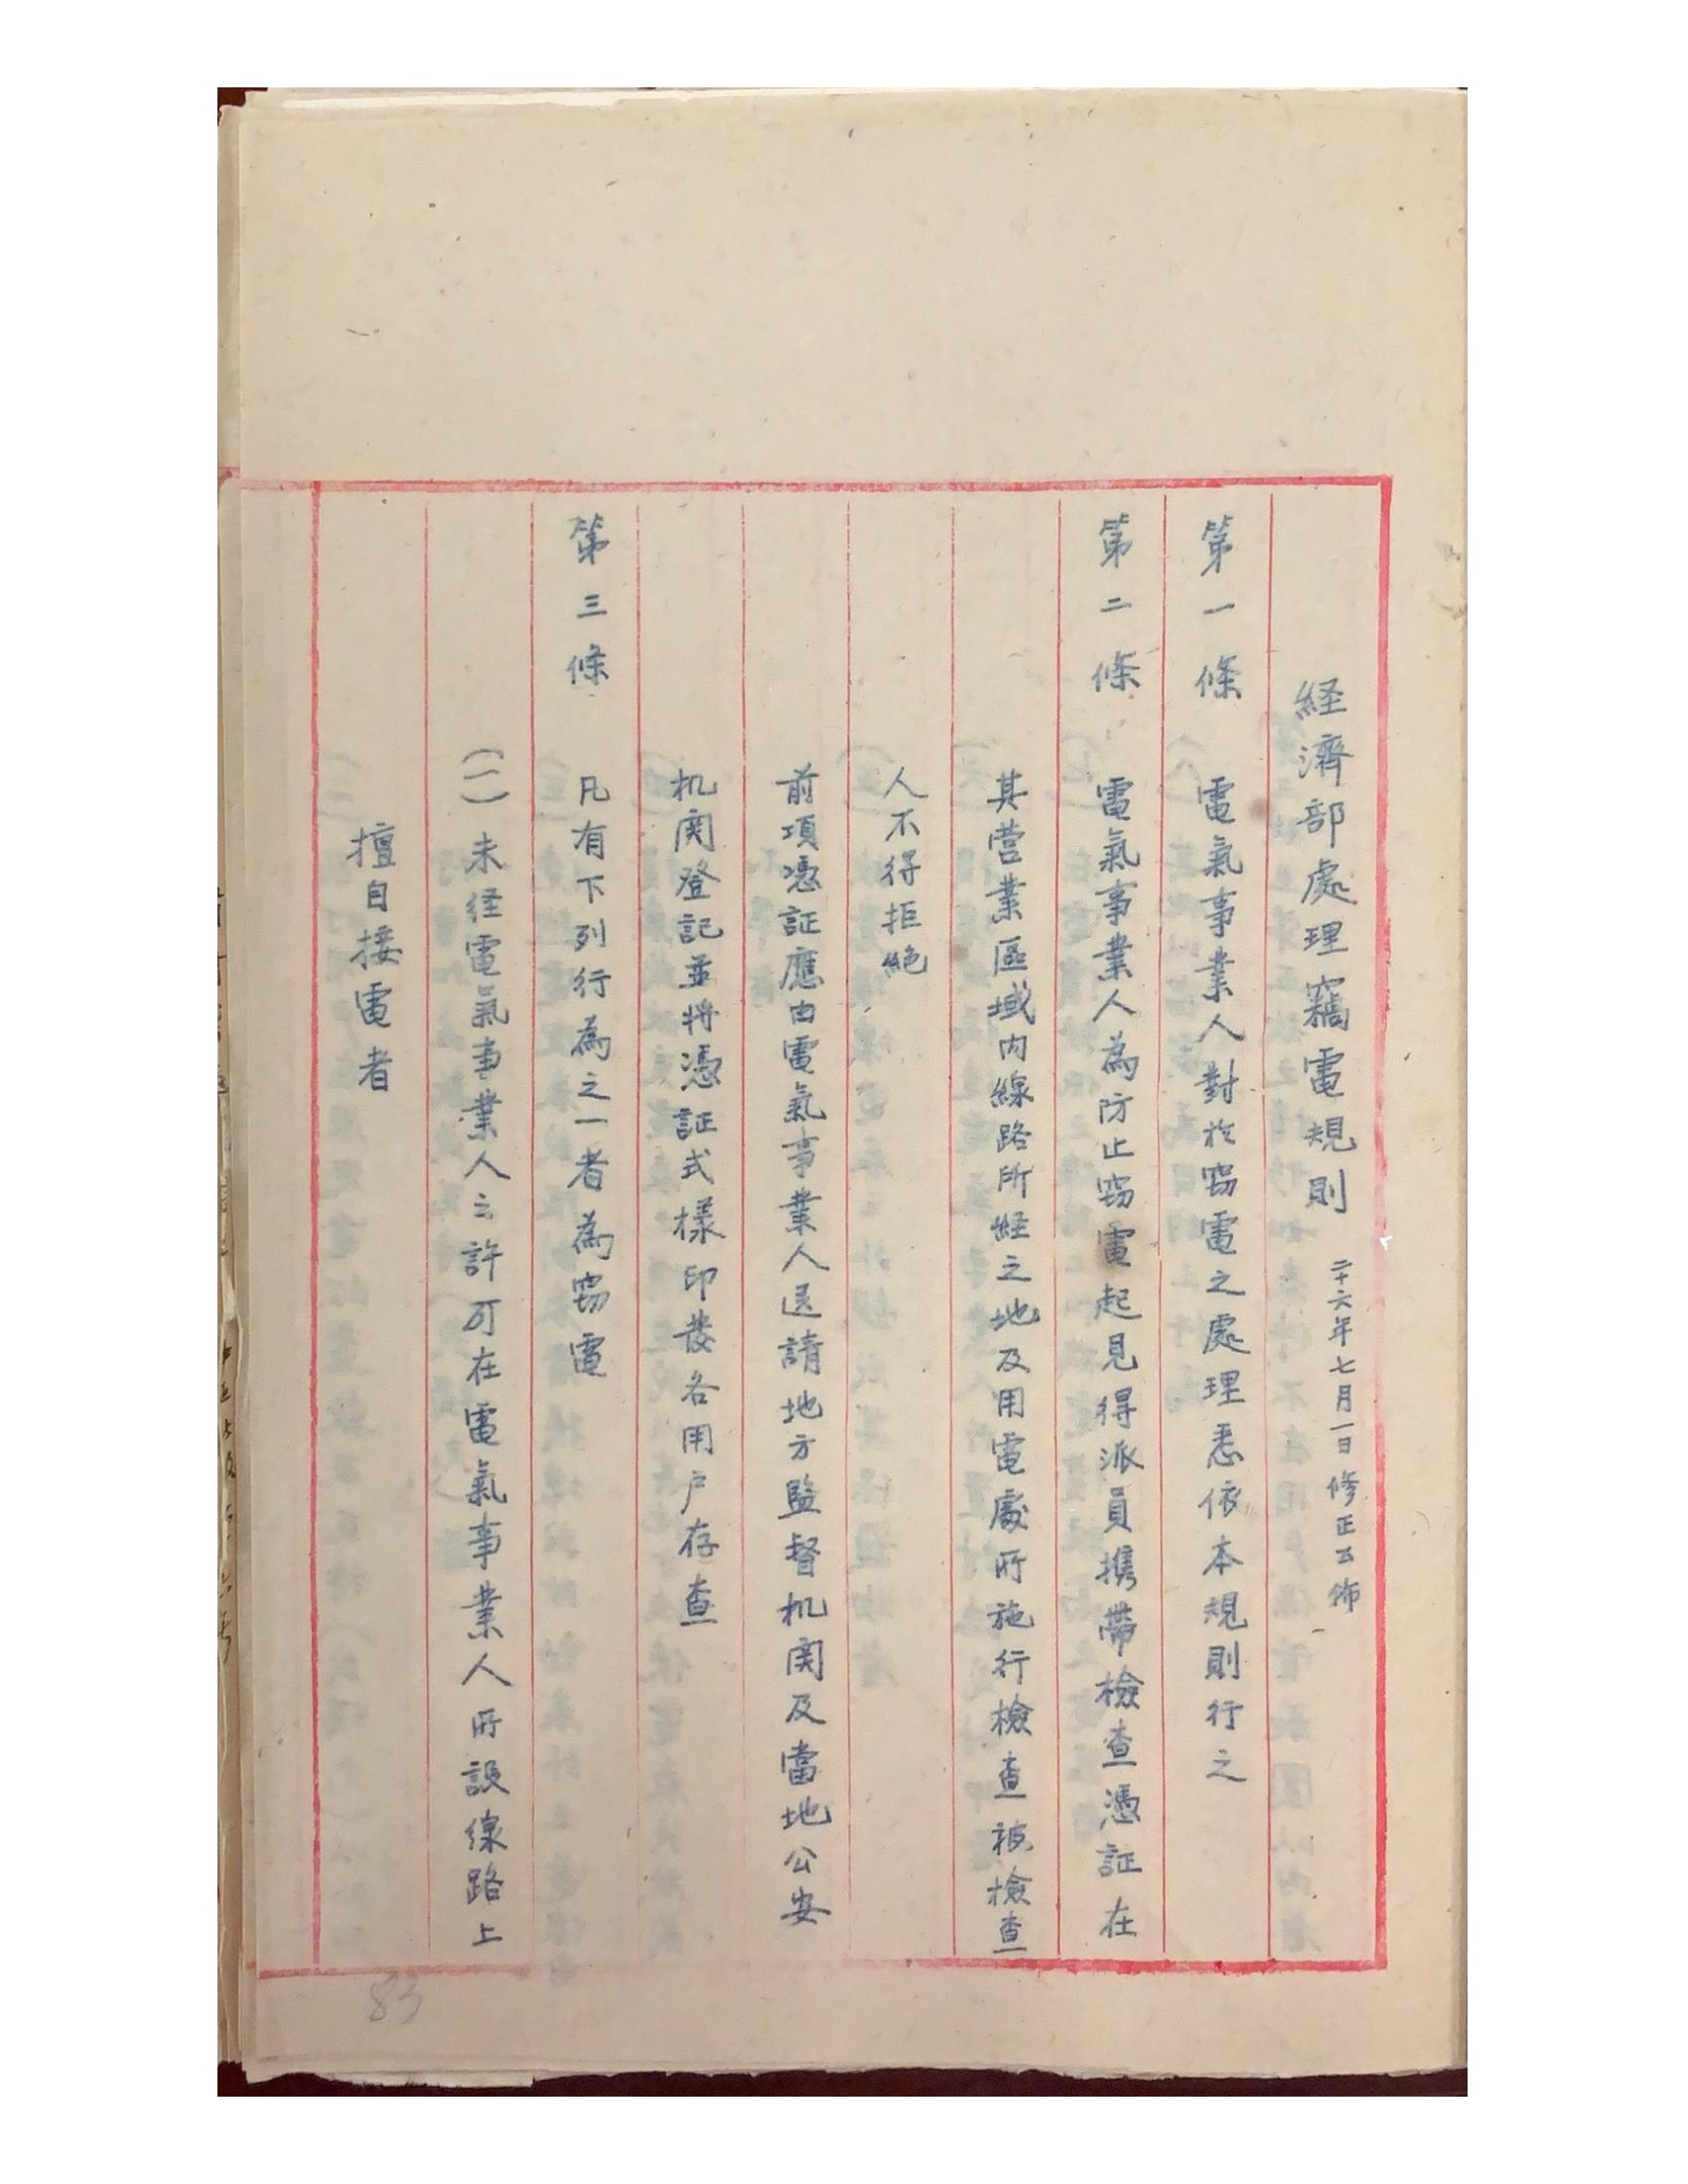 経濟部處理竊電規則 二十六年七月一日修正公佈
第一條 電氣事業人對於窃電之處理悉依本規則行之
第二條 電氣事業人為防止窃電起見得派員携帶檢查憑証在
其营業區域内線路所経之地及用電處所施行檢查被檢查
人不得拒絕
前項憑証應由電氣事業人送請地方監督机関及當地公安
机関登記並将憑証式樣印發各用户存查
第三條 凡有下列行為之一者為窃電
(一)未経電氣事業人之許可在電氣事業人所設線路上
擅自接電者
83